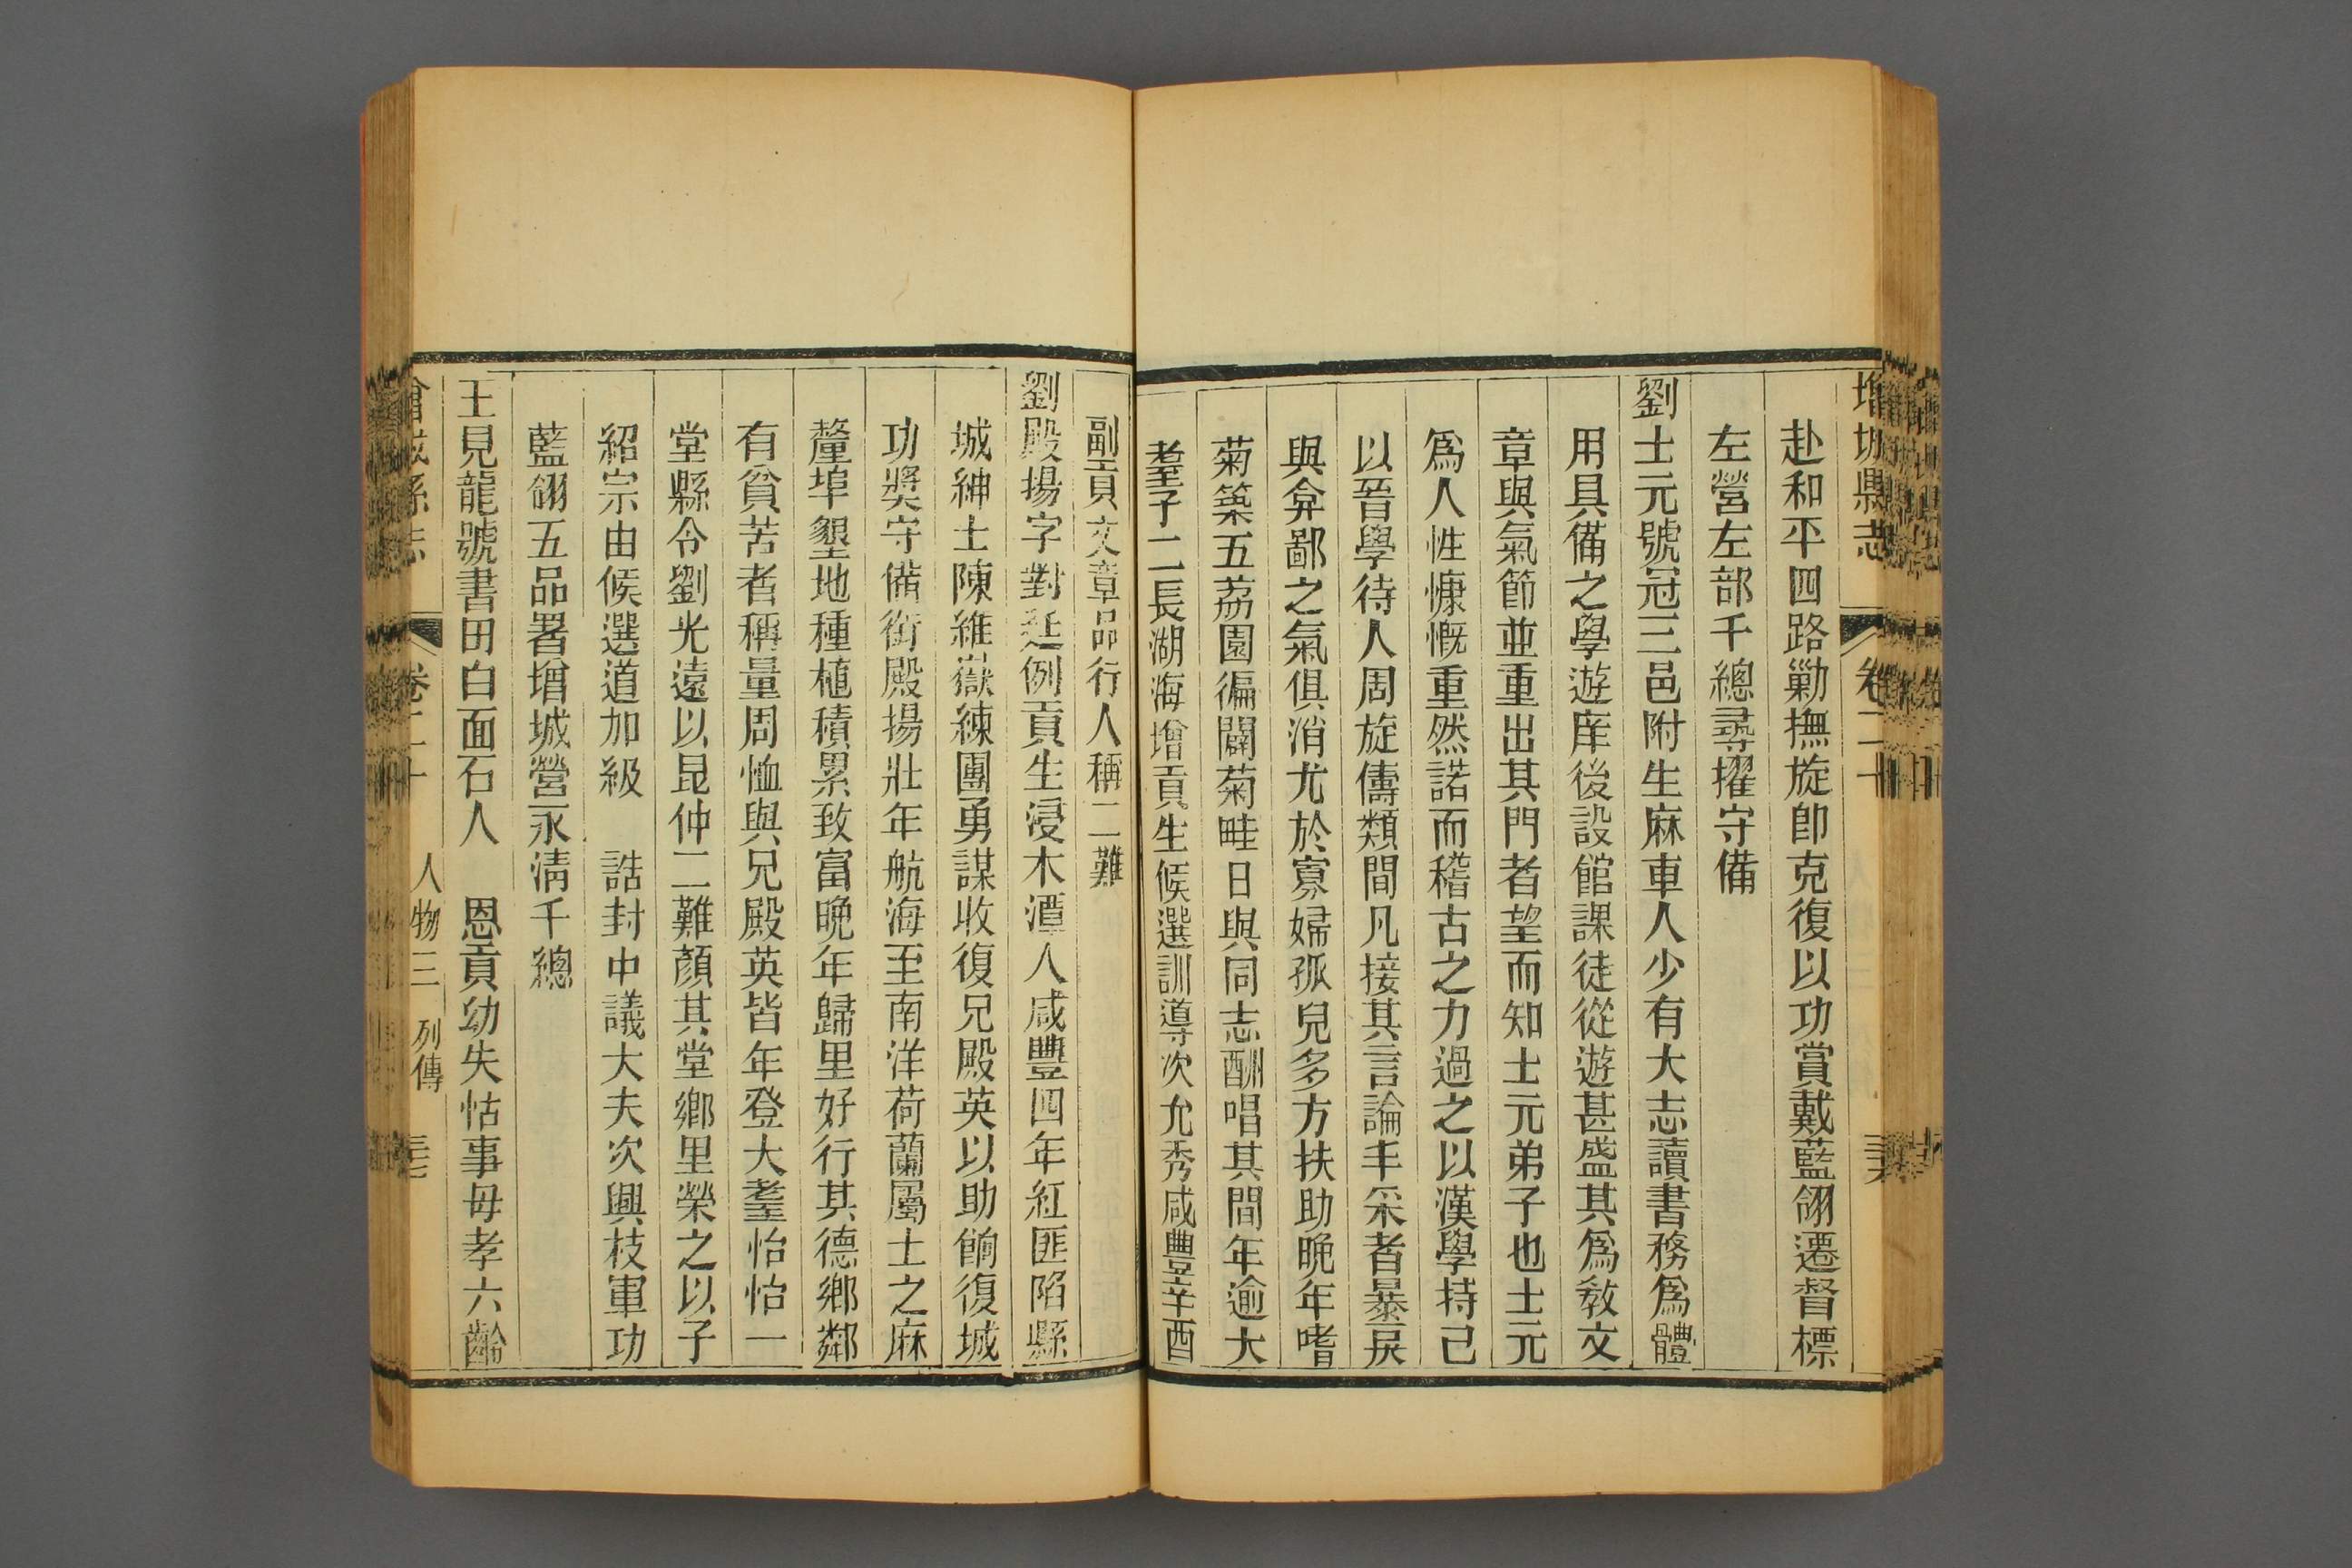 增城縣志 卷二十 三六
赴和平四路勦撫旋卽克復以功賞戴藍翎遷督標
左營左部千總尋擢守備
劉士元號冠三邑附生麻車人少有大志讀書務爲體
用具備之學遊庠後設館課徒從遊甚盛其爲敎文
章與氣節並重出其門者望而知士元弟子也士元
爲人性慷慨重然諾而稽古之力過之以漢學持己
以晉學待人周旋儔類間凡接其言論丰采者暴戾
與弇鄙之氣俱消尤於寡婦孤兒多方扶助晩年嗜
菊築五荔園徧闢菊畦日與同志酬唱其間年逾大
耋子二長湖海增貢生候選訓導次允秀咸豐辛酉
副貢文章品行人稱二難
劉殿揚字對廷例貢生浸木潭人咸豐四年紅匪陷縣
城紳士陳維嶽練團勇謀收復兄殿英以助餉復城
功獎守備銜殿揚壯年航海至南洋荷蘭屬土之麻
釐埠墾地種植積累致富晩年歸里好行其德鄕鄰
有貧苦者稱量周恤與兄殿英皆年登大耋怡怡一
堂縣令劉光遠以昆仲二難顏其堂鄕里榮之以子
紹宗由候選道加級 誥封中議大夫次興枝軍功
藍翎五品署增城營永淸千總
王見龍號書田白面石人 恩貢幼失怙事母孝六齡
增城縣志 卷二十 人物三 列傳 三七